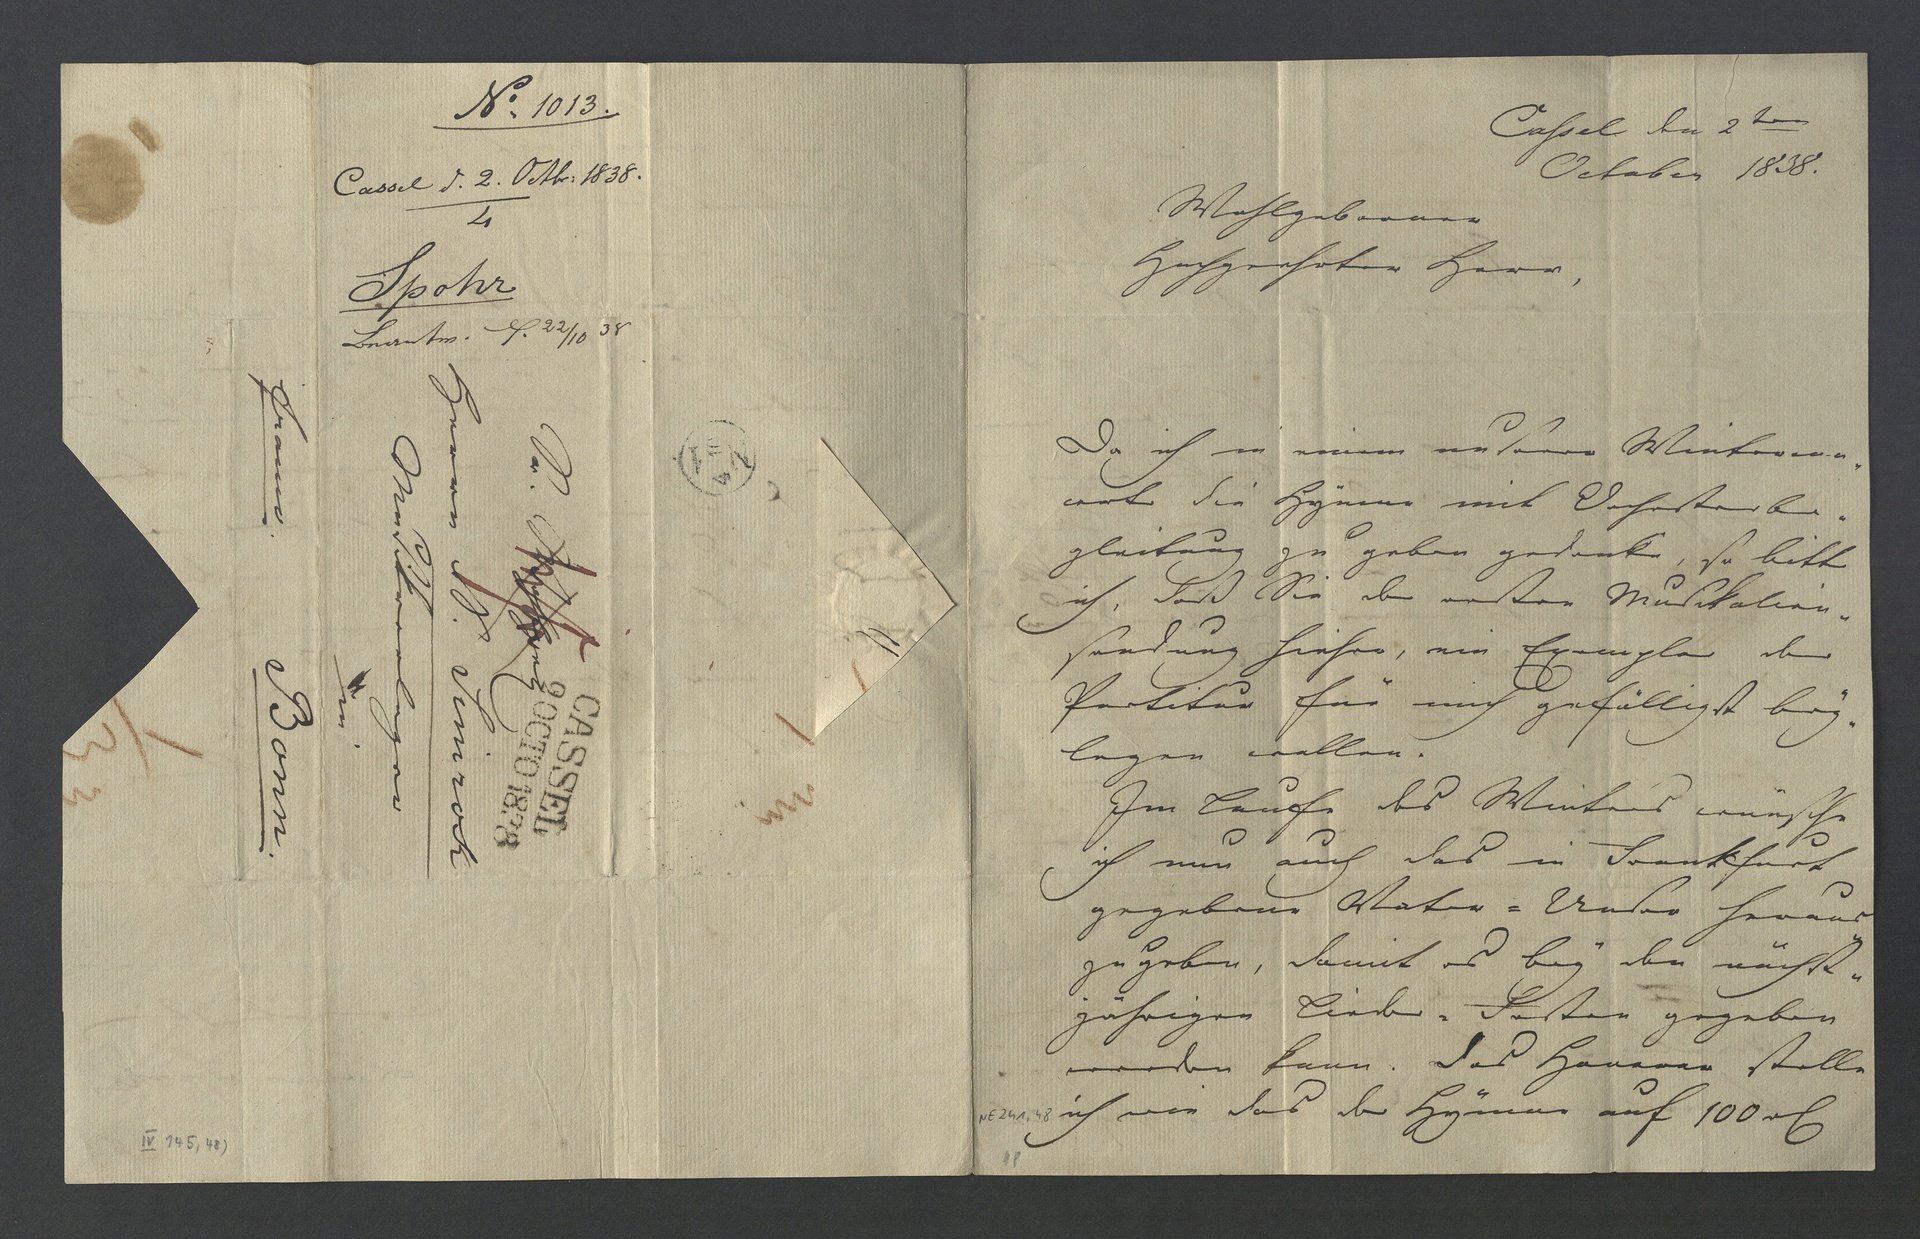 No. 1013.
Cassel d. 2. Octbr. 1838.
4
Spohr
Beantw. d. 22/10 38
Herrn N. Simrock
Musikverleger
in
franco.
Bonn.
CASSEL
2 OCTO 1838
IV 145, 48)
Cassel den 2ten
October 1838.
Wohlgeborner
Hochgeehrter Herr,
Da ich in einem unserer Winterconc-
certe die Hymne mit Orchesterbe-
gleitung zu geben gedenke, so bitte
ich, daß Sie der ersten Musikalien-
sendung hieher, ein Exemplar der
Partitur für mich gefälligst bey-
legen wollen.
Im Laufe des Winters wünsche
ich nun auch das in Frankfurt
gegebene Vater-Unser heraus
zugeben, damit es bey den nächst-
jährigen Lieder-Festen gegeben
werden kann. Das Honorar stelle
NE 241, 48
ich wie das der Hymne auf 100 rℓ